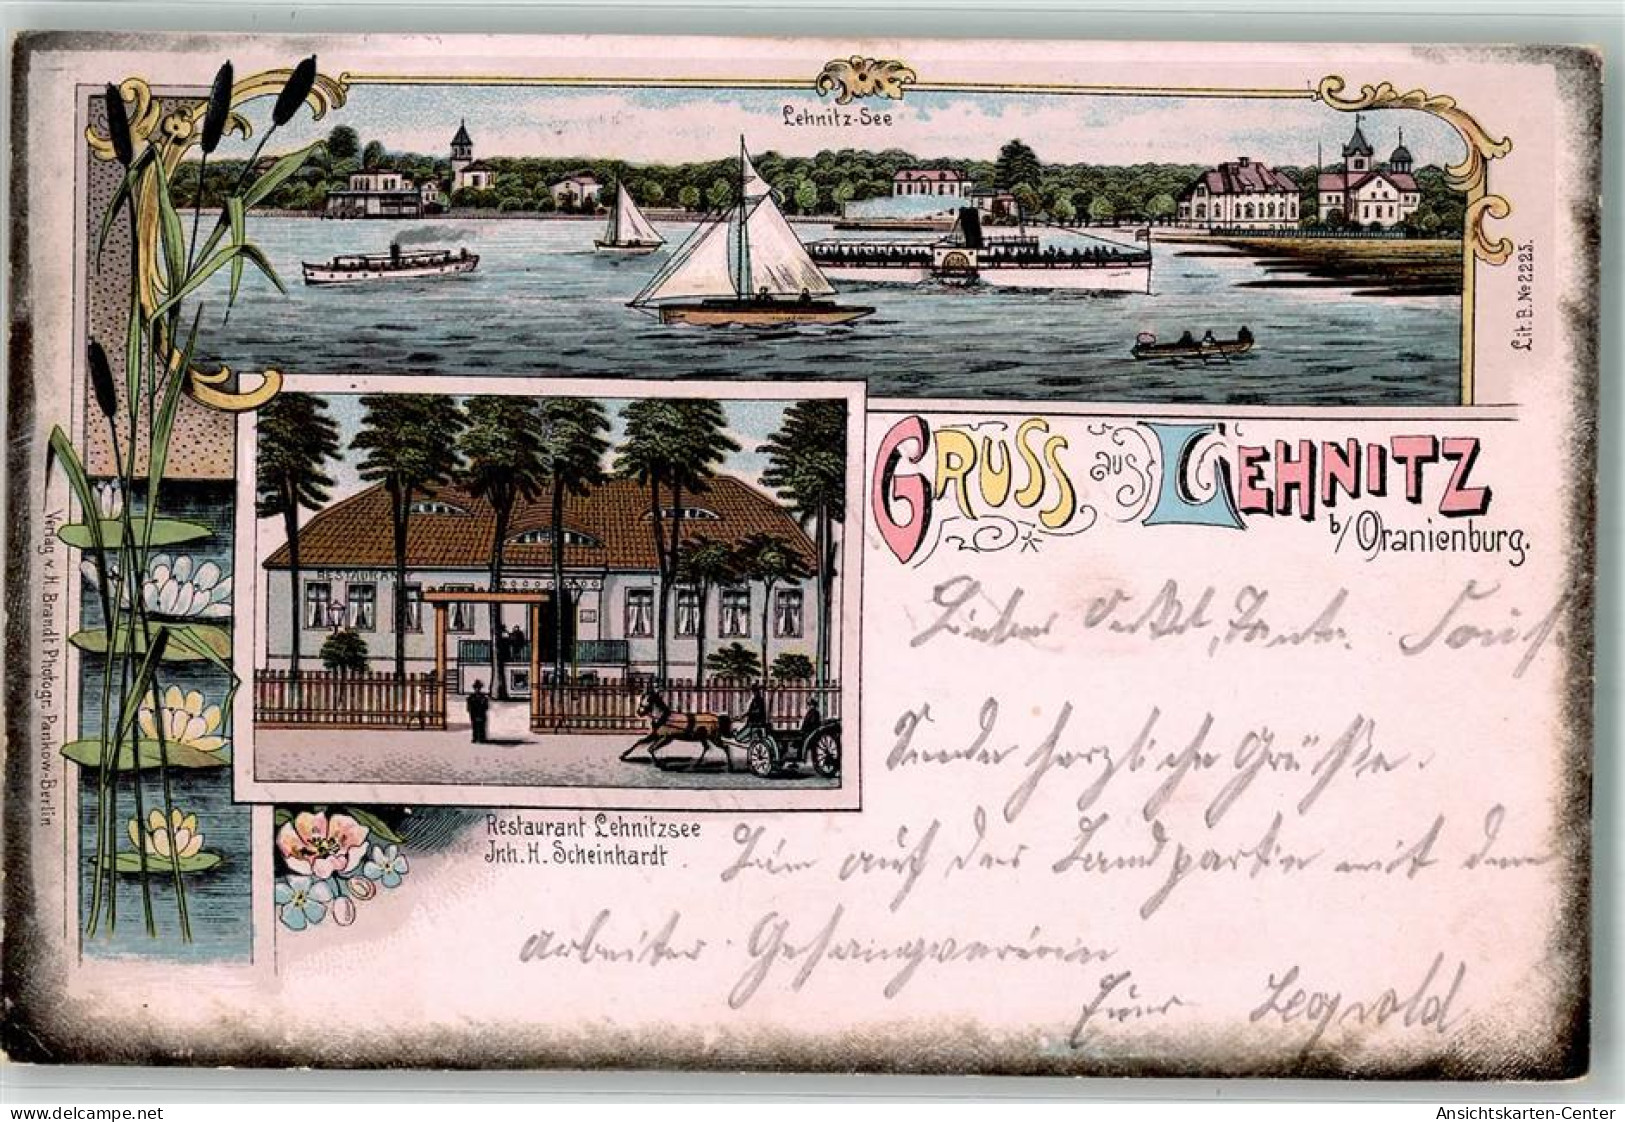 Lehnitz-See
Lit. B. No 2225.
GRUSS aus LEHNITZ
b/ Oranienburg.
RESTAURANT
Verlag v. H. Brandt Photogr. Pankow-Berlin
Restaurant Lehnitzsee
Jnh. H. Scheinhardt
Lieber Tante
Sende herzliche Grüße.
auf der Landpartie mit dem
arbeiter Gesangverein
Euer Leopold
delcampe.net
Ansichtskarten-Center